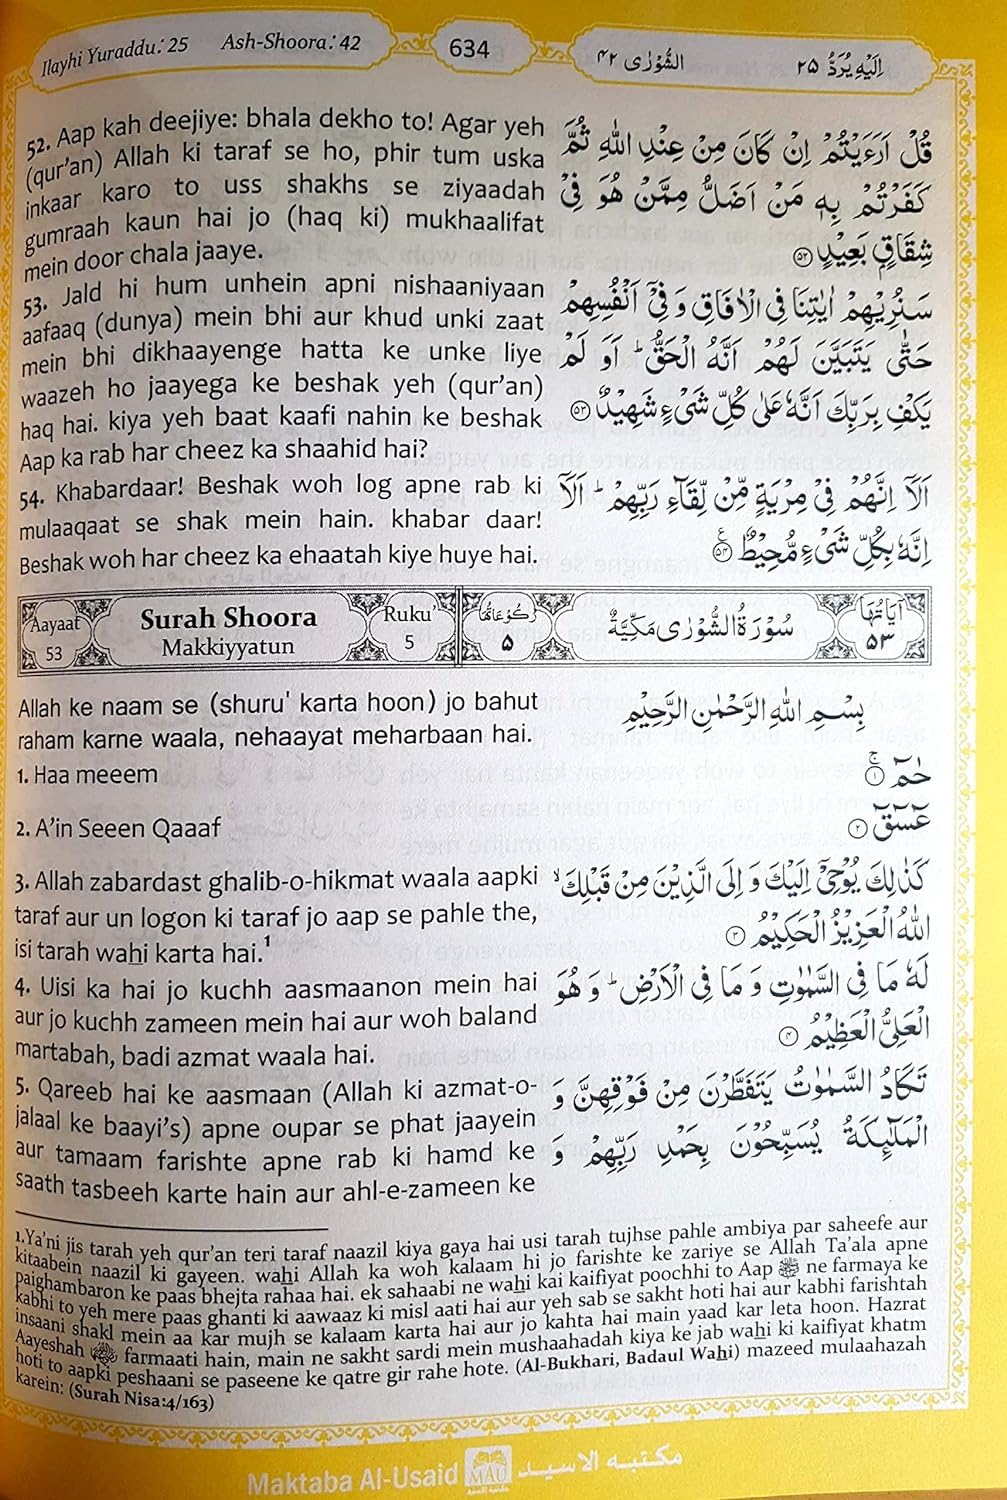 Ilayhi Yuraddu: 25 Ash-Shoora: 42 634 الشُّوْرٰى ٤٢ اِلَيْهِ يُرَدُّ ٢٥
52. Aap kah deejiye: bhala dekho to! Agar yeh
(qur'an) Allah ki taraf se ho, phir tum uska
inkaar karo to uss shakhs se ziyaadah
gumraah kaun hai jo (haq ki) mukhaalifat
mein door chala jaaye.
قُلْ اَرَءَيْتُمْ اِنْ كَانَ مِنْ عِنْدِ اللّٰهِ ثُمَّ
كَفَرْتُمْ بِهٖ مَنْ اَضَلُّ مِمَّنْ هُوَ فِیْ
شِقَاقٍۭ بَعِيْدٍ ۝٥٢
53. Jald hi hum unhein apni nishaaniyaan
aafaaq (dunya) mein bhi aur khud unki zaat
mein bhi dikhaayenge hatta ke unke liye
waazeh ho jaayega ke beshak yeh (qur'an)
haq hai. kiya yeh baat kaafi nahin ke beshak
Aap ka rab har cheez ka shaahid hai?
سَنُرِيْهِمْ اٰيٰتِنَا فِی الْاٰفَاقِ وَ فِیْۤ اَنْفُسِهِمْ
حَتّٰى يَتَبَيَّنَ لَهُمْ اَنَّهُ الْحَقُّ ؕ اَوَ لَمْ
يَكْفِ بِرَبِّكَ اَنَّهٗ عَلٰى كُلِّ شَیْءٍ شَهِيْدٌ ۝٥٣
54. Khabardaar! Beshak woh log apne rab ki
mulaaqaat se shak mein hain. khabar daar!
Beshak woh har cheez ka ehaatah kiye huye hai.
اَلَاۤ اِنَّهُمْ فِیْ مِرْيَةٍ مِّنْ لِّقَآءِ رَبِّهِمْ ؕ اَلَاۤ
اِنَّهٗ بِكُلِّ شَیْءٍ مُّحِيْطٌ ۝٥٤ ع
Aayaat Surah Shoora Ruku' رُكُوْعَاتُهَا سُوْرَةُ الشُّوْرٰى مَكِّيَّةٌ اٰيَاتُهَا
53 Makkiyyatun 5 ٥ ٥٣
Allah ke naam se (shuru' karta hoon) jo bahut
raham karne waala, nehaayat meharbaan hai.
بِسْمِ اللّٰهِ الرَّحْمٰنِ الرَّحِيْمِ
1. Haa meeem
حٰمٓ ۝١
2. A'in Seeen Qaaaf
عٓسٓقٓ ۝٢
3. Allah zabardast ghalib-o-hikmat waala aapki
taraf aur un logon ki taraf jo aap se pahle the,
isi tarah wahi karta hai.¹
كَذٰلِكَ يُوْحِیْۤ اِلَيْكَ وَ اِلَى الَّذِيْنَ مِنْ قَبْلِكَ ۙ
اللّٰهُ الْعَزِيْزُ الْحَكِيْمُ ۝٣
4. Uisi ka hai jo kuchh aasmaanon mein hai
aur jo kuchh zameen mein hai aur woh baland
martabah, badi azmat waala hai.
لَهٗ مَا فِی السَّمٰوٰتِ وَ مَا فِی الْاَرْضِ ؕ وَ هُوَ
الْعَلِیُّ الْعَظِيْمُ ۝٤
5. Qareeb hai ke aasmaan (Allah ki azmat-o-
jalaal ke baayi's) apne oupar se phat jaayein
aur tamaam farishte apne rab ki hamd ke
saath tasbeeh karte hain aur ahl-e-zameen ke
تَكَادُ السَّمٰوٰتُ يَتَفَطَّرْنَ مِنْ فَوْقِهِنَّ وَ
الْمَلٰٓئِكَةُ يُسَبِّحُوْنَ بِحَمْدِ رَبِّهِمْ وَ
1.Ya'ni jis tarah yeh qur'an teri taraf naazil kiya gaya hai usi tarah tujhse pahle ambiya par saheefe aur
kitaabein naazil ki gayeen. wahi Allah ka woh kalaam hi jo farishte ke zariye se Allah Ta'ala apne
paighambaron ke paas bhejta rahaa hai. ek sahaabi ne wahi kai kaifiyat poochhi to Aap ﷺ ne farmaya ke
kabhi to yeh mere paas ghanti ki aawaaz ki misl aati hai aur yeh sab se sakht hoti hai aur kabhi farishtah
insaani shakl mein aa kar mujh se kalaam karta hai aur jo kahta hai main yaad kar leta hoon. Hazrat
Aayeshah farmaati hain, main ne sakht sardi mein mushaahadah kiya ke jab wahi ki kaifiyat khatm
hoti to aapki peshaani se paseene ke qatre gir rahe hote. (Al-Bukhari, Badaul Wahi) mazeed mulaahazah
karein: (Surah Nisa:4/163)
Maktaba Al-Usaid MAU مكتبه الاسيد